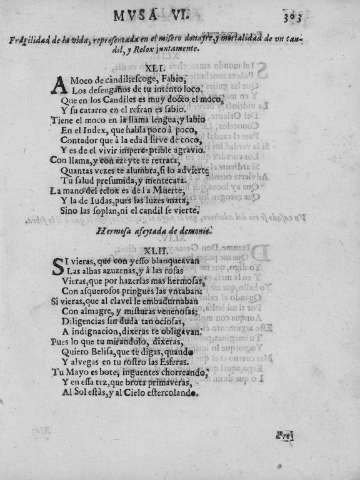 MUSA VI. 303
Fragilidad de la vida, representada en el misero donayre, y moralidad de un can-
dil, y Relox juntamente.
XLI.
A Moco de candil escoge, Fabio,
Los desengaños de tu intento loco,
Que en los Candiles es muy docto el moco,
Y su catarro en el refran es sabio.
Tiene el moco en la llama lengua, y labio
En el Index, que habla poco à poco,
Contador que à la edad sirve de coco,
Y es de el vivir imperceptible agravio.
Con llama, y con azeyte te retrata,
Quantas vezes te alumbra, si lo advierte
Tu salud presumida, y mentecata.
La mano del relox es de la Muerte,
Y la de Iudas, pues las luzes mata,
Sino las soplan, ni el candil se vierte.
Hermosa afeytada de demonio.
XLII.
SI vieras, que con yesso blanqueavan
Las albas azuzenas, y à las rosas
Vieras, que por hazerlas mas hermosas,
Con asquerosos pringues las vntaban:
Si vieras, que al clavel le embadurnaban
Con almagre, y misturas venenosas;
Diligencias sin duda tan ociosas,
A indignacion, dixeras te obligavan.
Pues lo que tu mirandolo, dixeras,
Quiero Belisa, que te digas, quando
Y alvegas en tu rostro las Esferas.
Tu Mayo es bote, inguentes chorreando,
Y en essa tez, que brota primaveras,
Al Sol estàs, y al Cielo estercolando.